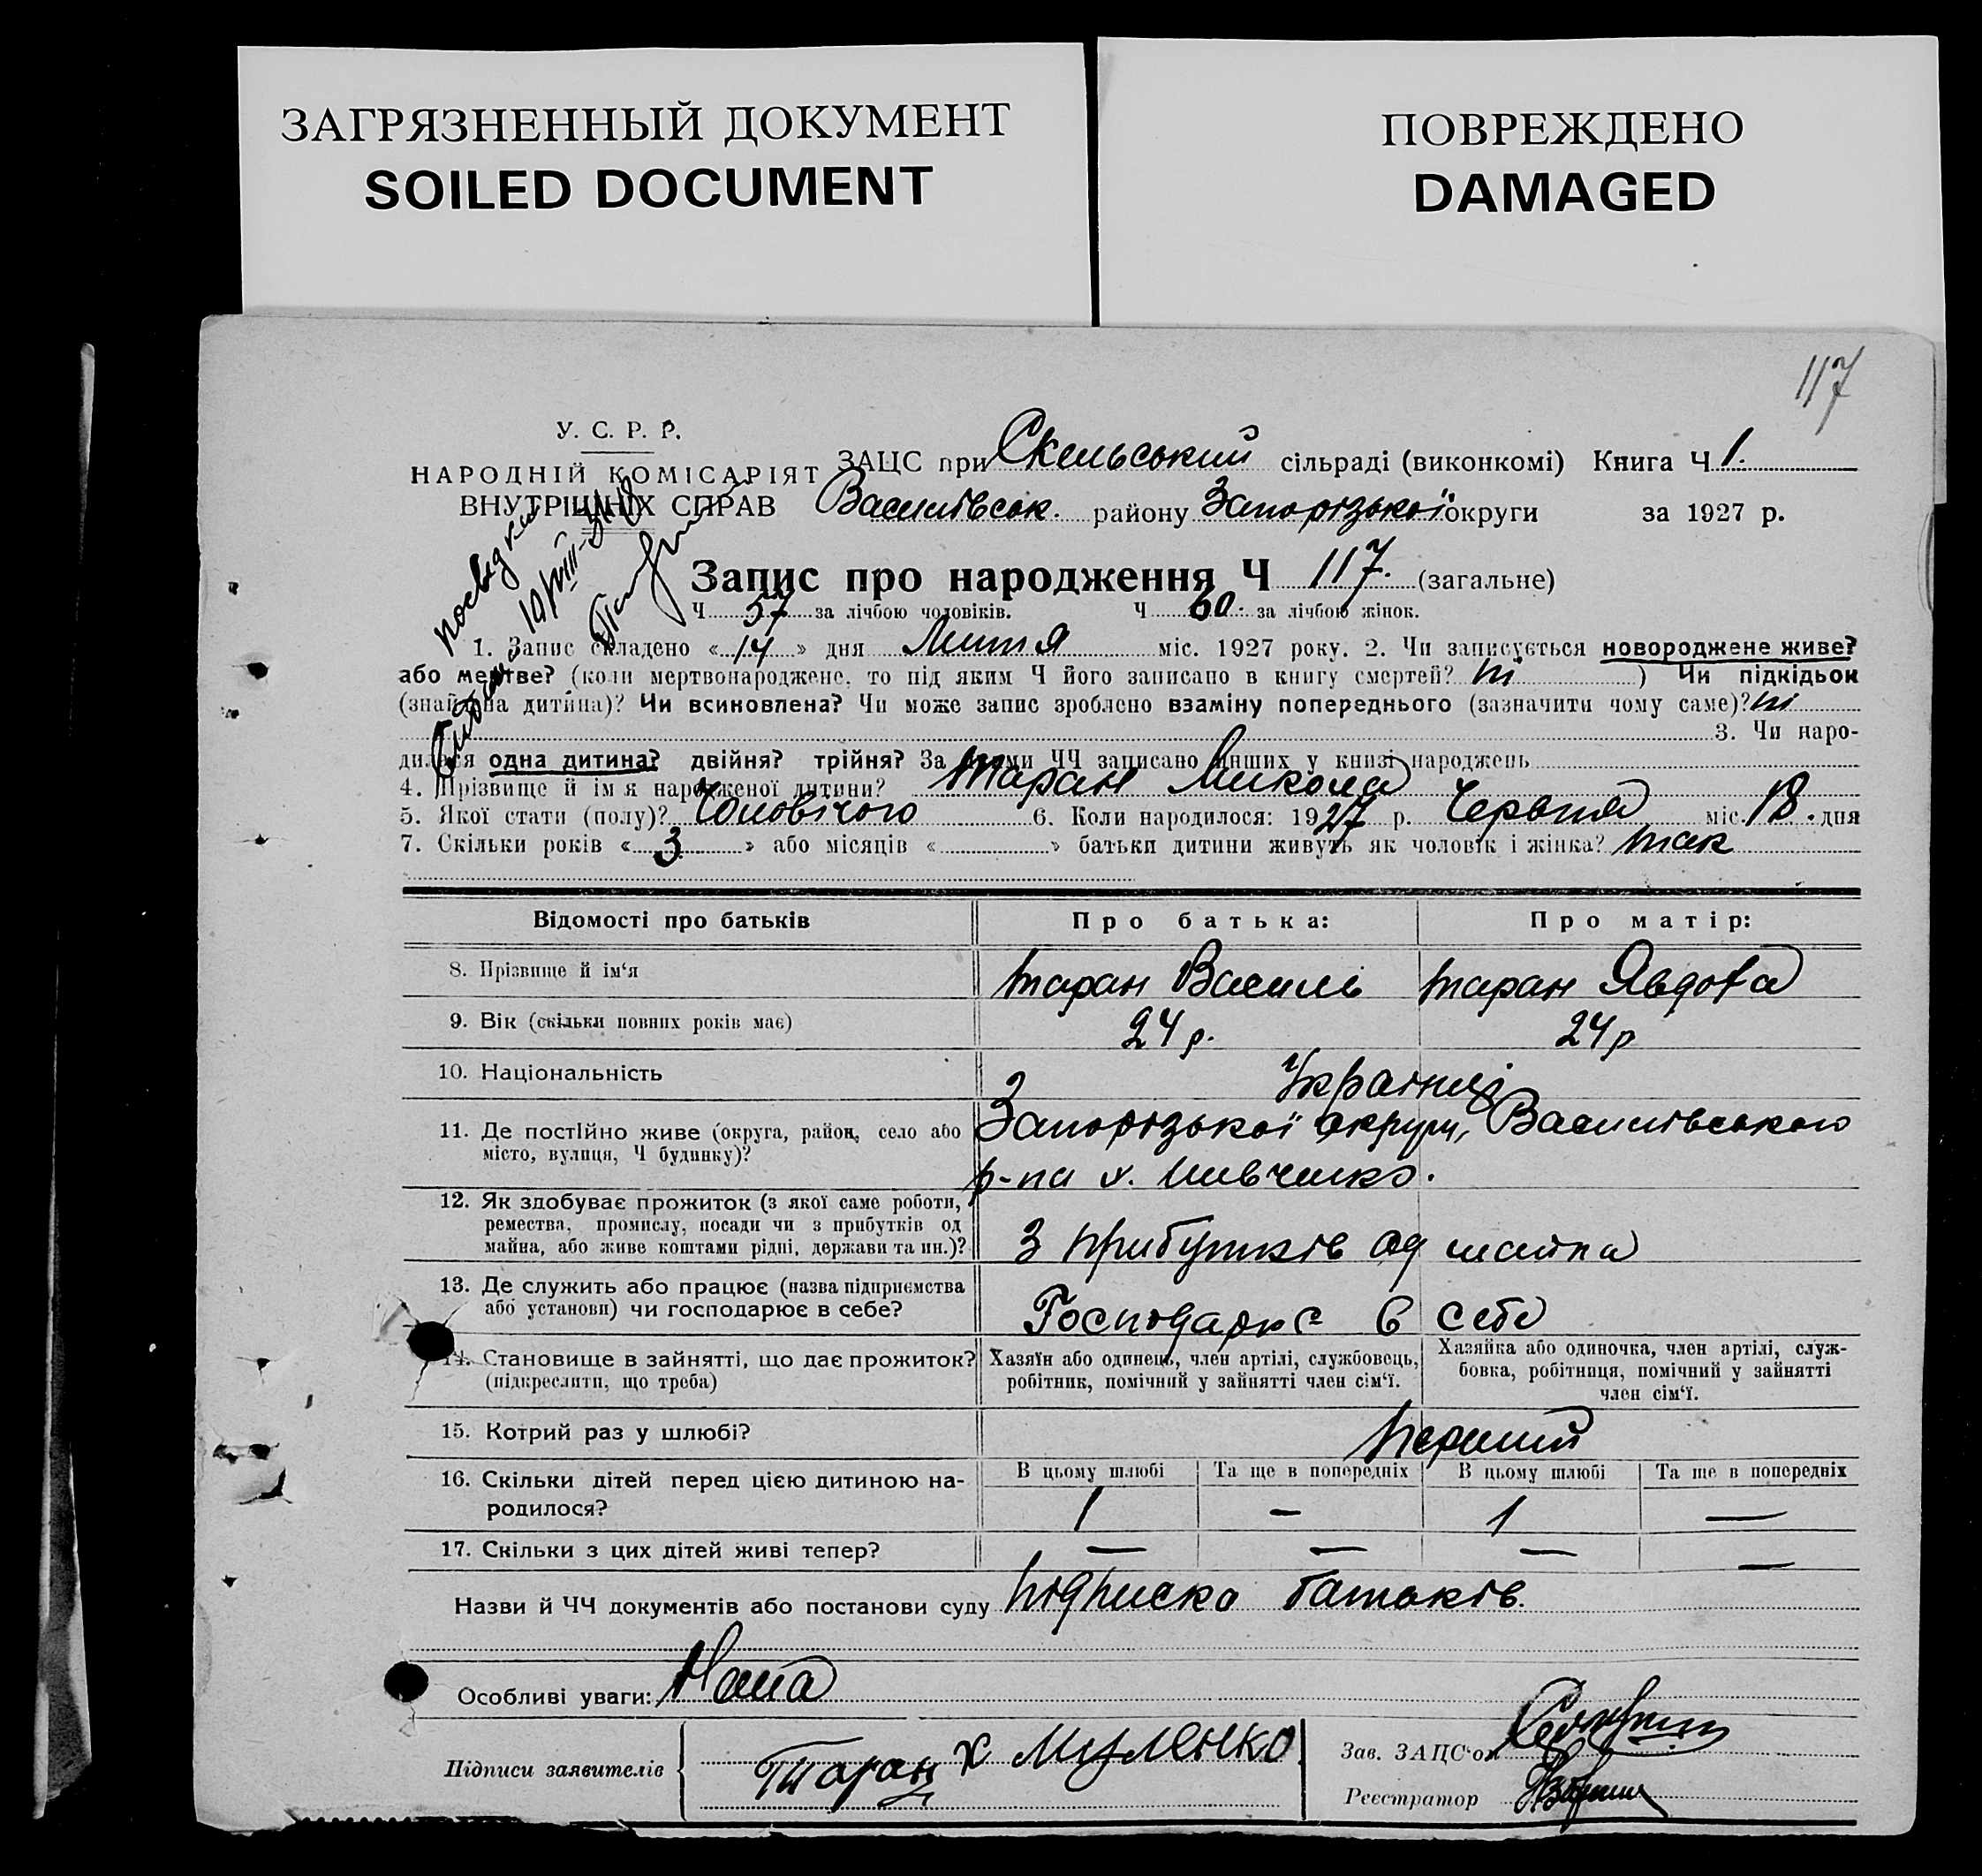 ЗАГРЯЗНЕННЫЙ ДОКУМЕНТ
SOILED DOCUMENT
ПОВРЕЖДЕНО
DAMAGED
117
У. С. Р. Р.
НАРОДНІЙ КОМІСАРІЯТ
ВНУТРІШНІХ СПРАВ
ЗАЦС при Скельський сільраді (виконкомі) Книга Ч 1.
Василівськ. району Запорізької округи за 1927 р.
Запис про народження Ч 117. (загальне)
Ч 57 за лічбою чоловіків. Ч 60. за лічбою жінок.
1. Запис складено « 14 » дня Липня міс. 1927 року. 2. Чи записується новороджене живе?
або мертве? (коли мертвонароджене, то під яким Ч його записано в книгу смертей? ні ) Чи підкідьок
(знайдена дитина)? Чи всиновлена? Чи може запис зроблено взаміну попереднього (зазначити чому саме)? ні
3. Чи наро-
дилася одна дитина? двійня? трійня? За якими ЧЧ записано инших у книзі народжень
4. Прізвище й ім'я народженої дитини? Таран Микола
5. Якої стати (полу)? Чоловічого 6. Коли народилося: 1927 р. Червня міс. 18. дня
7. Скільки років « 3 » або місяців « » батьки дитини живуть як чоловік і жінка? так
Відомості про батьків Про батька: Про матір:
8. Прізвище й ім'я Таран Василь Таран Явдоха
9. Вік (скільки повних років має) 24 р. 24 р
10. Національність Українці
11. Де постійно живе (округа, район, село або Запорізької округи, Василівського
місто, вулиця, Ч будинку)? р-на х.
12. Як здобуває прожиток (з якої саме роботи,
ремества, промислу, посади чи з прибутків од
майна, або живе коштами рідні, держави та ин.)? З прибутків од майна
13. Де служить або працює (назва підприємства
або установи) чи господарює в себе? Господарює в себе
14. Становище в зайнятті, що дає прожиток? Хазяїн або одинець, член артілі, службовець, Хазяйка або одиночка, член артілі, служ-
(підкреслити, що треба) робітник, помічний у зайнятті член сім'ї. бовка, робітниця, помічний у зайнятті
член сім'ї.
15. Котрий раз у шлюбі? Перший
16. Скільки дітей перед цією дитиною на- В цьому шлюбі Та ще в попередніх В цьому шлюбі Та ще в попередніх
родилося? 1 — 1 —
17. Скільки з цих дітей живі тепер? — — — —
Назви й ЧЧ документів або постанови суду Підписка батьків.
Особливі уваги: Нема
Підписи заявителів Таран х Муленко
Зав. ЗАЦС'ом
Реєстратор